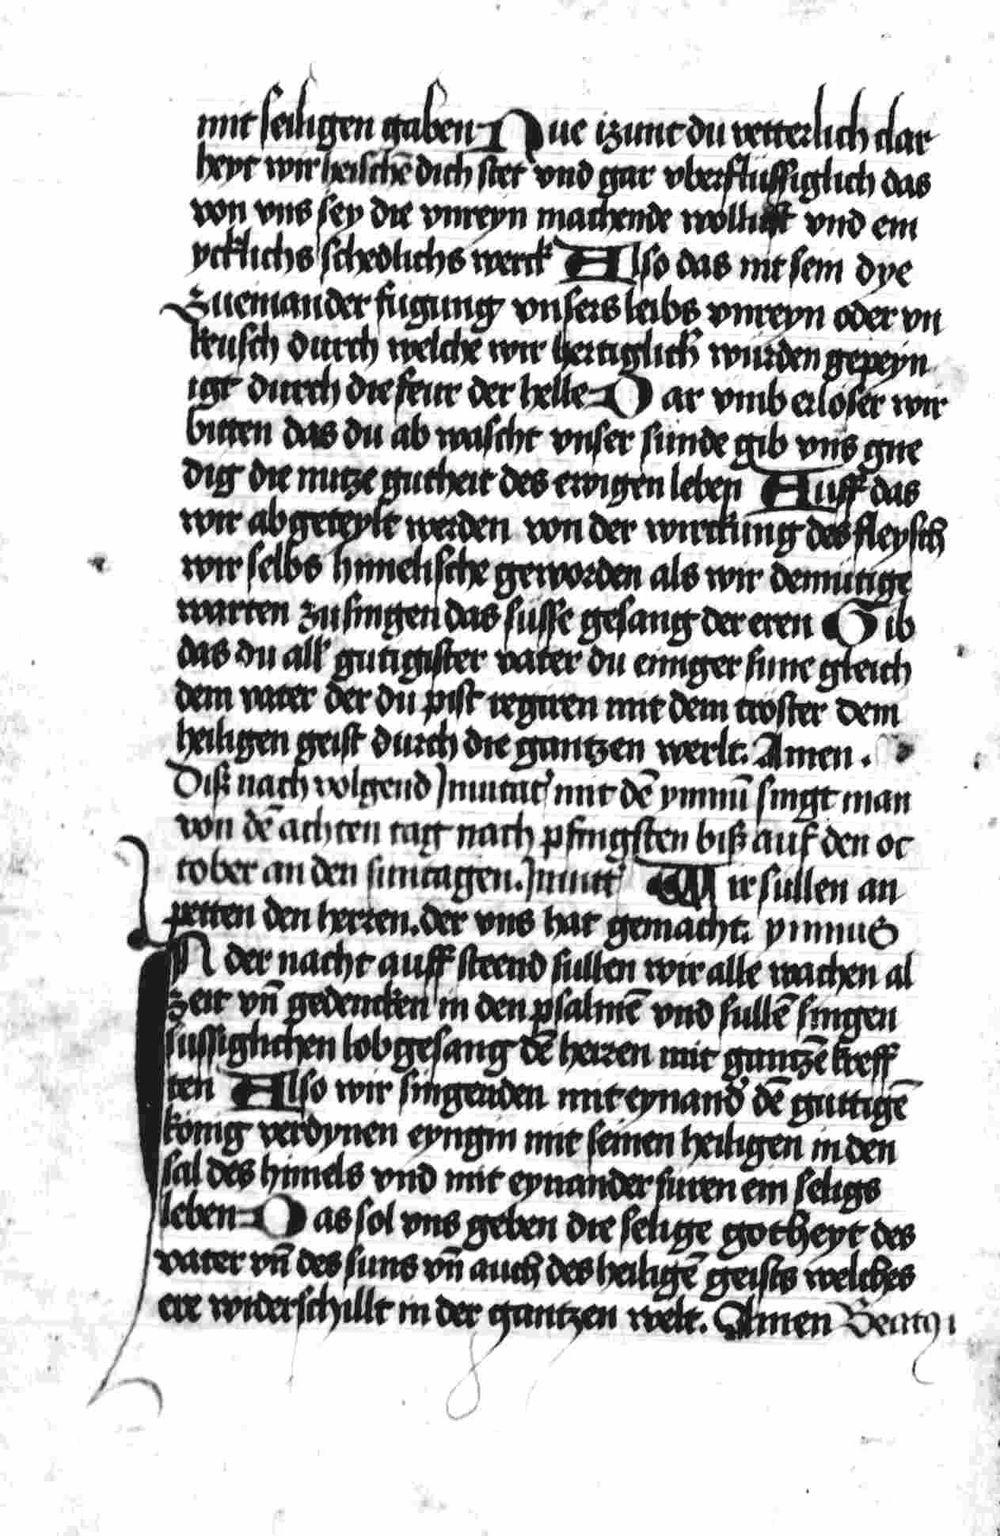 mit seiligen gaben Nue izunt du vetterlich clar
heyt wir heischē dich stet vnd gar vberflüssiglich das
von vns sey die vnreyn machende wollust vnd ein
ycklichs schedlichs werck Also das nit sein dye
Zueinander fugung vnsers leibs vnreyn oder vn
keusch durch welche wir hertiglich würden gepeyn
igt durch die feur der helle Dar vmb erlöser wir
bitten das du ab wascht vnser sunde gib vns gne
dig die nutze gutheit des ewigen leben Auff das
wir abgeteylt werden von der wirckung des fleysch
wir selbs himelische geworden als wir demütige
warten zu singen das süsse gesang der eren Gib
das du all gutigister vater du einiger sune gleich
dem vater der du pist regiren mit dem troster dem
heiligen geist durch die gantzen werlt. Amen.
Diß nach volgend Inuitat' mit dē ymnū singt man
von dē achten tag nach pfingsten biß auf den oc
tober an den suntagen. Inuitt' Wir sullen an
petten den herren. der vns hat gemacht. ymnus
IN der nacht auff steend sullen wir alle wachen al
zeit vn̄ gedencken in den psalmē vnd sullē singen
sussiglichen lobgesang dē herren mit gantzē kreff
ten Also wir singenden mit eynand' dē guttigē
könig verdynen eyngin mit seinen heiligen in den
sal des himels vnd mit eynander furen ein seligs
leben Das sol vns geben die selige gotheyt des
vater vn̄ des suns vn̄ auch des heiligē geists welches
ere widerschillt in der gantzen welt. Amen Beatꝯ